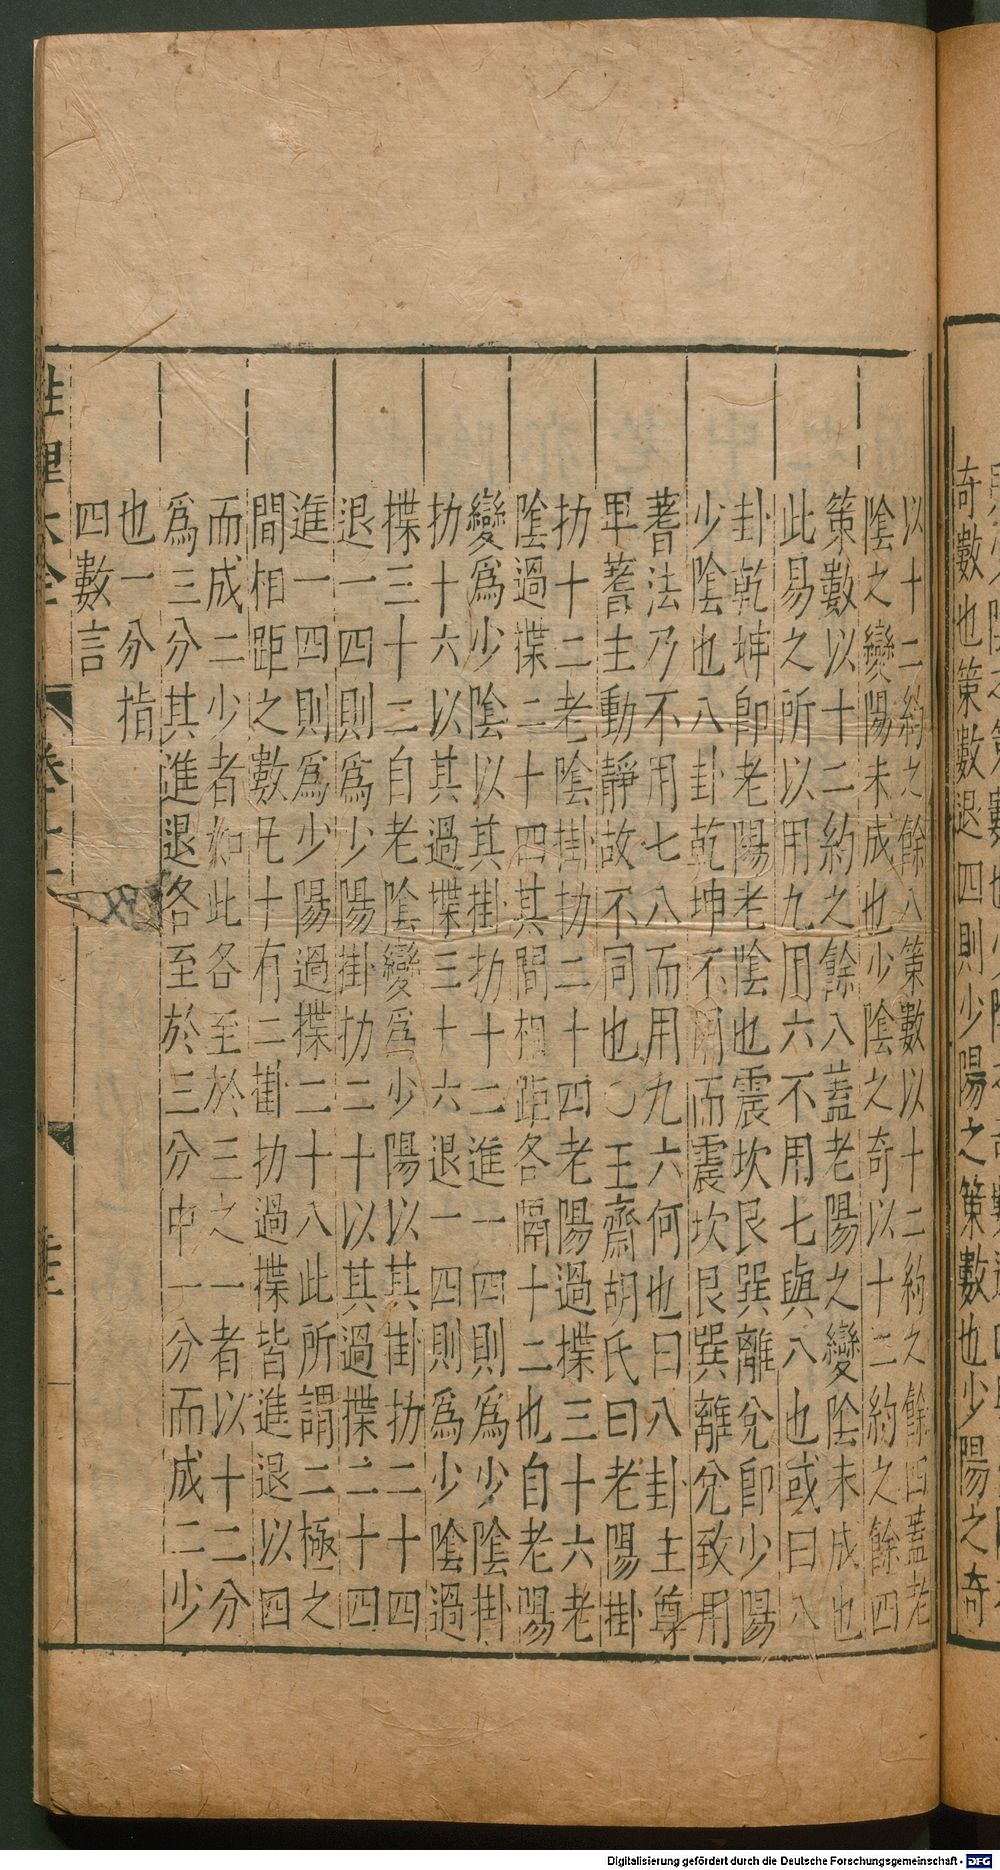 以十二約之餘八策數以十二約之餘四蓋老
陰之變陽未成也少陰之奇以十二約之餘四
策數以十二約之餘八蓋老陽之變陰未成也
此易之所以用九用六不用七與八也或曰八
卦乾坤即老陽老陰也震坎艮巽離兌即少陽
少陰也八卦乾坤不用而震坎艮巽離兌致用
蓍法乃不用七八而用九六何也曰八卦主尊
卑蓍主動靜故不同也〇玉齋胡氏曰老陽掛
扐十二老陰掛扐二十四老陽過揲三十六老
陰過揲二十四其間相距各隔十二也自老陽
變爲少陰以其掛扐十二進一四則爲少陰掛
扐十六以其過揲三十六退一四則爲少陰過
揲三十二自老陰變爲少陽以其掛扐二十四
退一四則爲少陽掛扐二十以其過揲二十四
進一四則爲少陽過揲二十八此所謂二極之
間相距之數凡十有二掛扐過揲皆進退以四
而成二少者如此各至於三之一者以十二分
爲三分其進退各至於三分中一分而成二少
也一分指
四數言
性理大全
奇數也策數退四則少陽之策數也少陽之奇
Digitalisierung gefördert durch die Deutsche Forschungsgemeinschaft - DFG